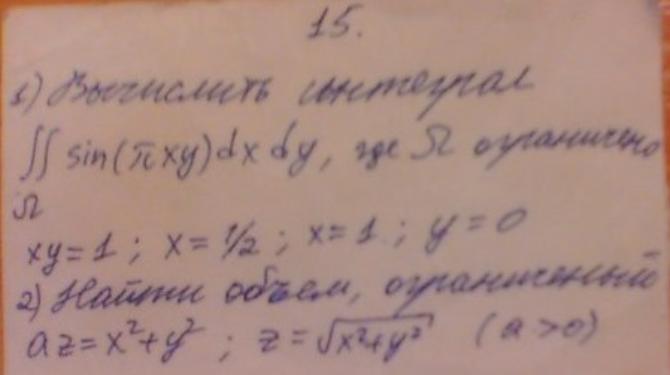 15.
1) Вычислить интеграл
∬ sin(πxy)dx dy, где Ω ограничено
Ω
xy=1; x=1/2; x=1; y=0
2) Найти объем, ограниченный
az=x²+y²; z=√x²+y² (a>0)